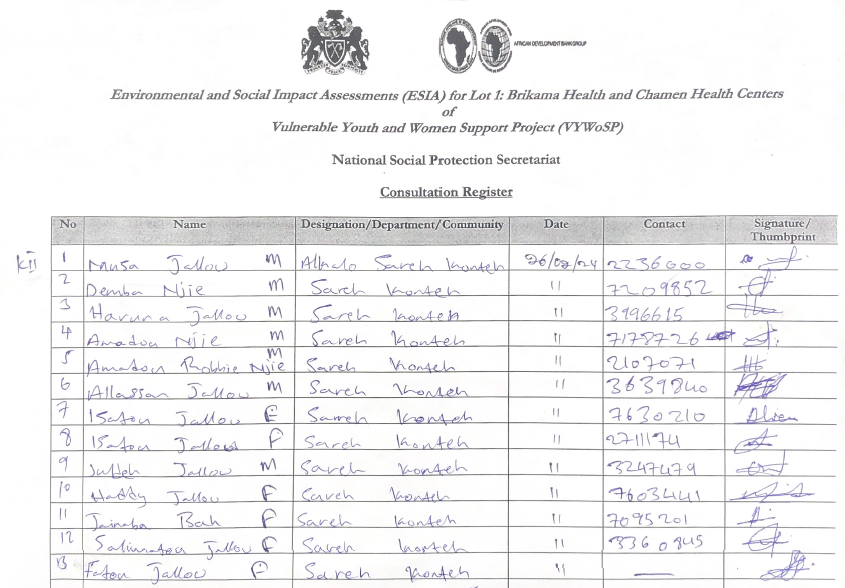 AFRICAN DEVELOPMENT BANK GROUP
Environmental and Social Impact Assessments (ESIA) for Lot 1: Brikama Health and Chamen Health Centers
of
Vulnerable Youth and Women Support Project (VYWoSP)
National Social Protection Secretariat
Consultation Register
No Name Designation/Department/Community Date Contact Signature/
Thumbprint
KII 1 Musa Jallow M Alkalo Sareh Konteh 26/02/24 2236000
2 Demba Njie M Sareh Konteh " 7209852
3 Haruna Jallow M Sareh Konteh " 3996615
4 Amadou Njie M Sareh Konteh " 7178726
5 Amadou Bobbie Njie M Sareh Konteh " 2107071
6 Allassan Jallow M Sareh Konteh " 3639840
7 Isatou Jallow F Sareh Konteh " 7630210
8 Isatou Jallow F Sareh Konteh " 2711174
9 Jallow M Sareh Konteh " 3247479
10 Haddy Jallow F Sareh Konteh " 7603441
11 Jainaba Bah F Sareh Konteh " 7095201
12 Salimatou Jallow F Sareh Konteh " 3360845
13 Fatou Jallow F Sareh Konteh " —